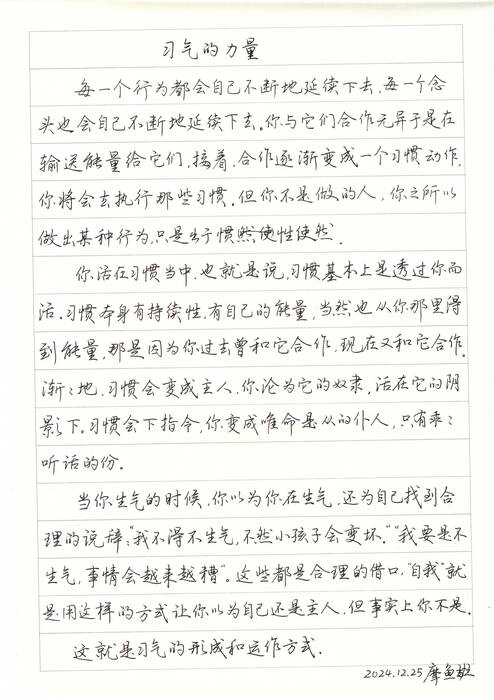 习气的力量
每一个行为都会自己不断地延续下去,每一个念
头也会自己不断地延续下去。你与它们合作无异于是在
输送能量给它们,接着,合作逐渐变成一个习惯动作,
你将会去执行那些习惯。但你不是做的人,你之所以
做出某种行为,只是出于惯性使然.
你活在习惯当中,也就是说,习惯基本上是透过你而
活.习惯本身有持续性,有自己的能量,当然也从你那里得
到能量,那是因为你过去曾和它合作,现在又和它合作.
渐渐地,习惯会变成主人,你沦为它的奴隶,活在它的阴
影下。习惯会下指令,你变成唯命是从的仆人,只有乖乖
听话的份。
当你生气的时候,你以为你在生气,还为自己找到合
理的说辞:“我不得不生气,不然小孩子会变坏.”“我要是不
生气,事情会越来越糟”。这些都是合理的借口,“自我”就
是用这样的方式让你以为自己还是主人,但事实上你不是.
这就是习气的形成和运作方式.
2024.12.25 摩鱼